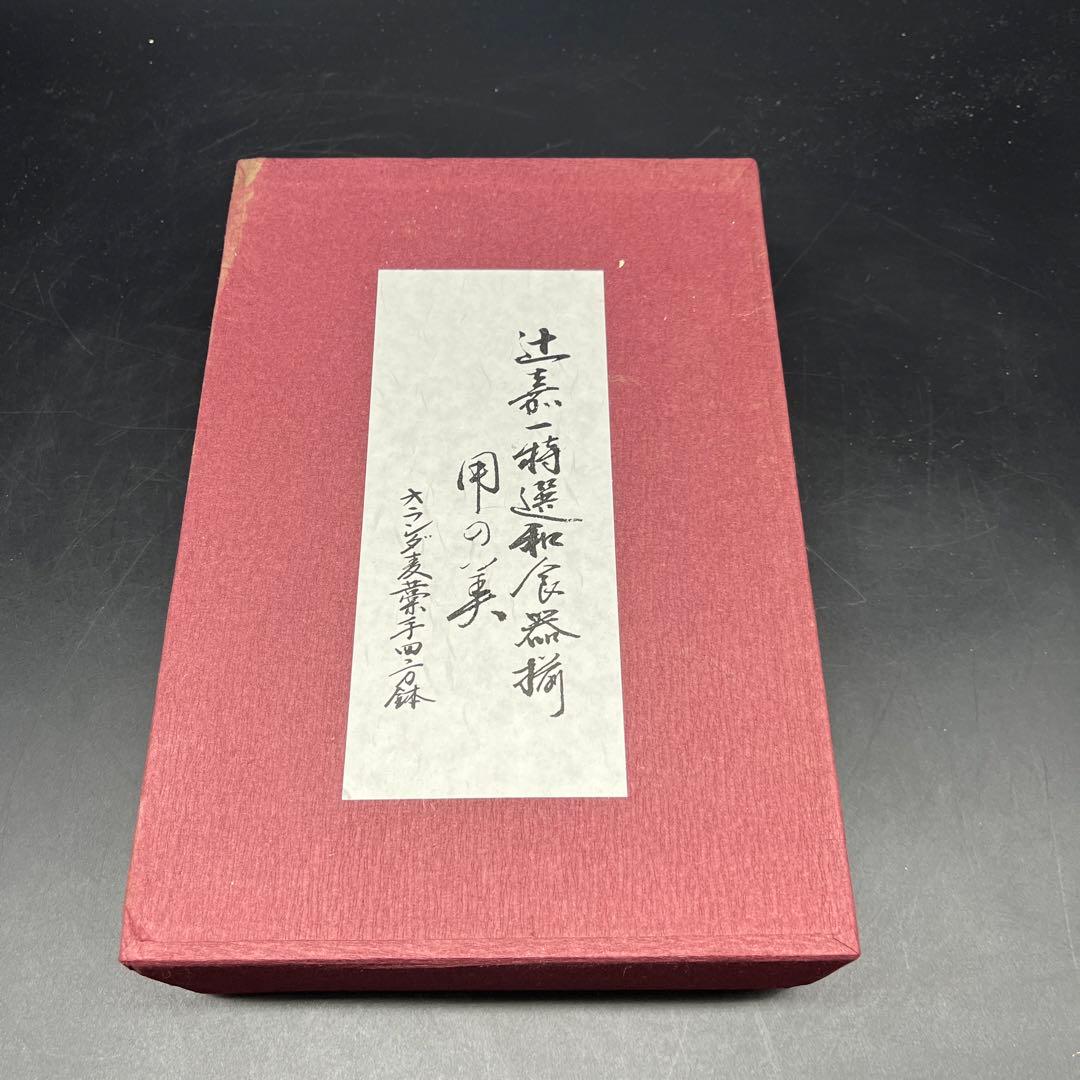 辻嘉一特選和食器揃
用の美
オランダ麦藁手四方鉢